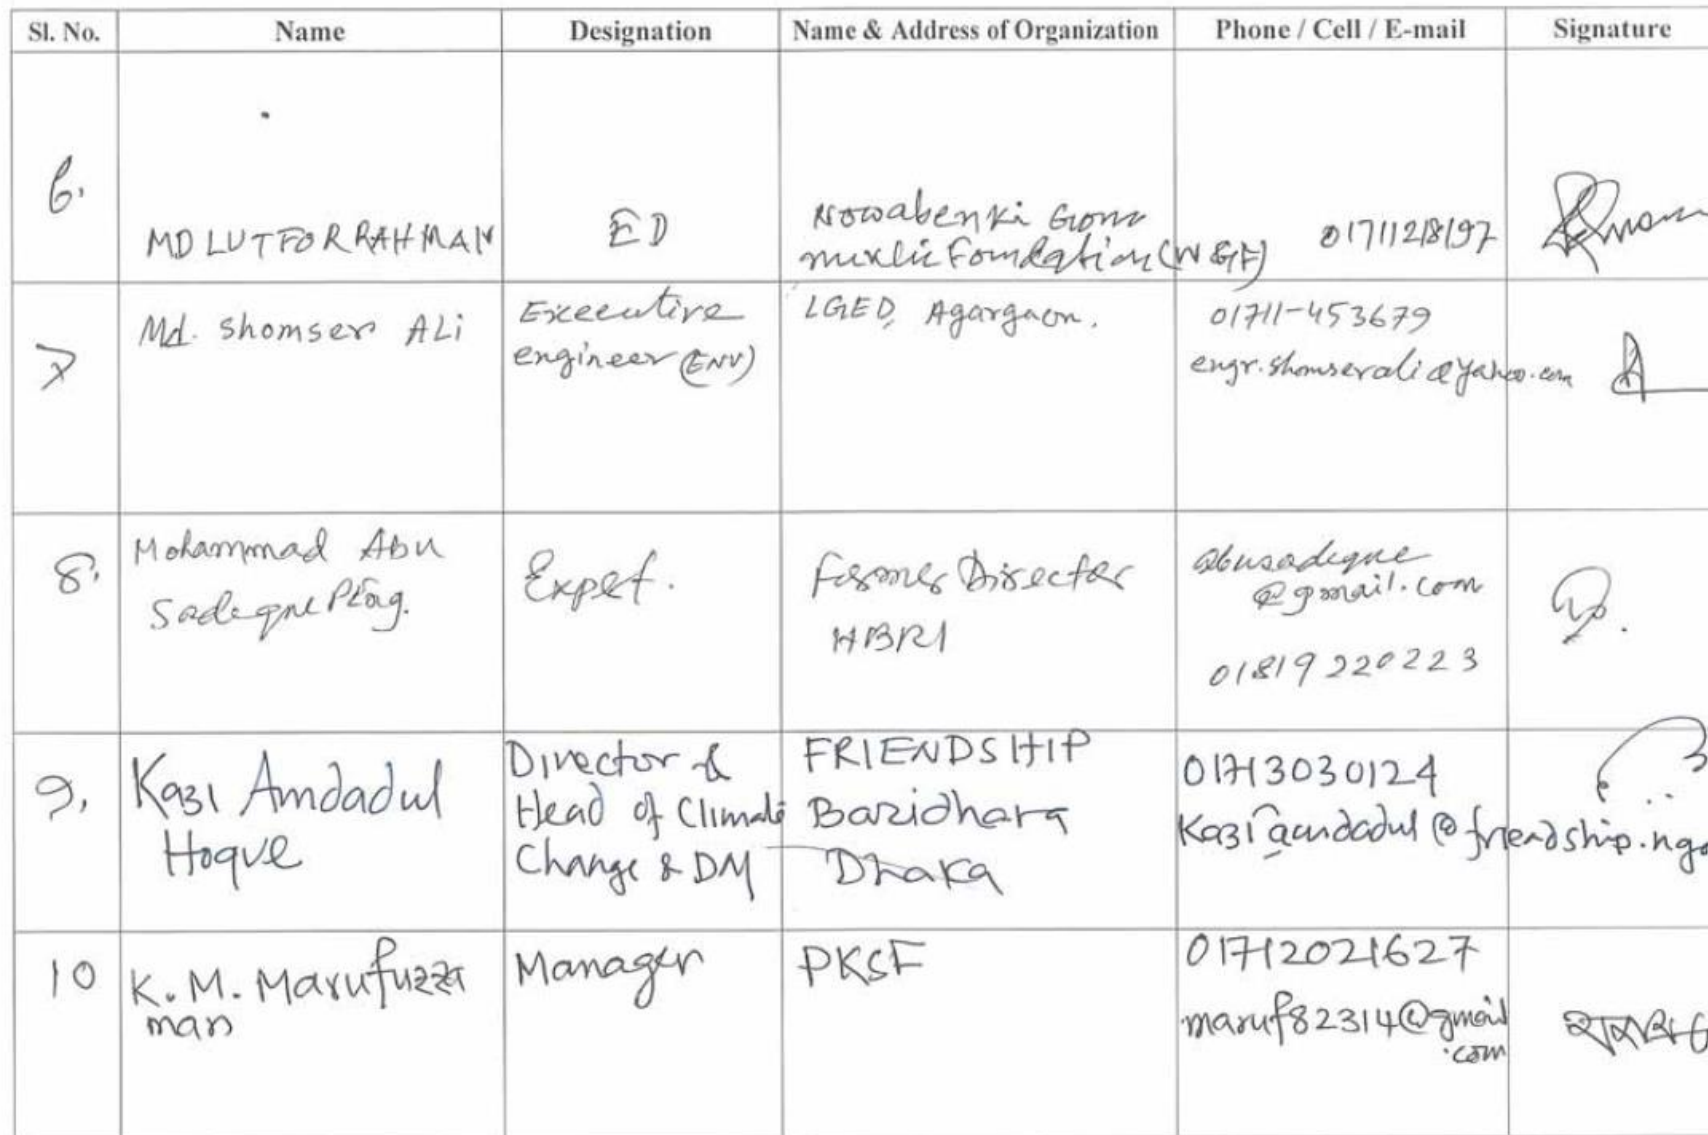 Sl. No. Name Designation Name & Address of Organization Phone / Cell / E-mail Signature
6. MD LUTFOR RAHMAN ED Nowabenki Foundation (NGF) 01711218197
7 Md. Shomser ALi Executive engineer (ENV) LGED, Agargaon. 01711-453679 engr.shomserali@yahoo.com
8. Mohammad Abu Sadeque Expet. Former Director HBRI abusadeque@gmail.com 01819220223
9. Kazi Amdadul Hoque Director & Head of Climate Change & DM FRIENDSHIP Baridhara Dhaka 01713030124 Kaziamdadul@friendship.ngo
10 K. M. Marufuzza man Manager PKSF 01712021627 maruf82314@gmail.com